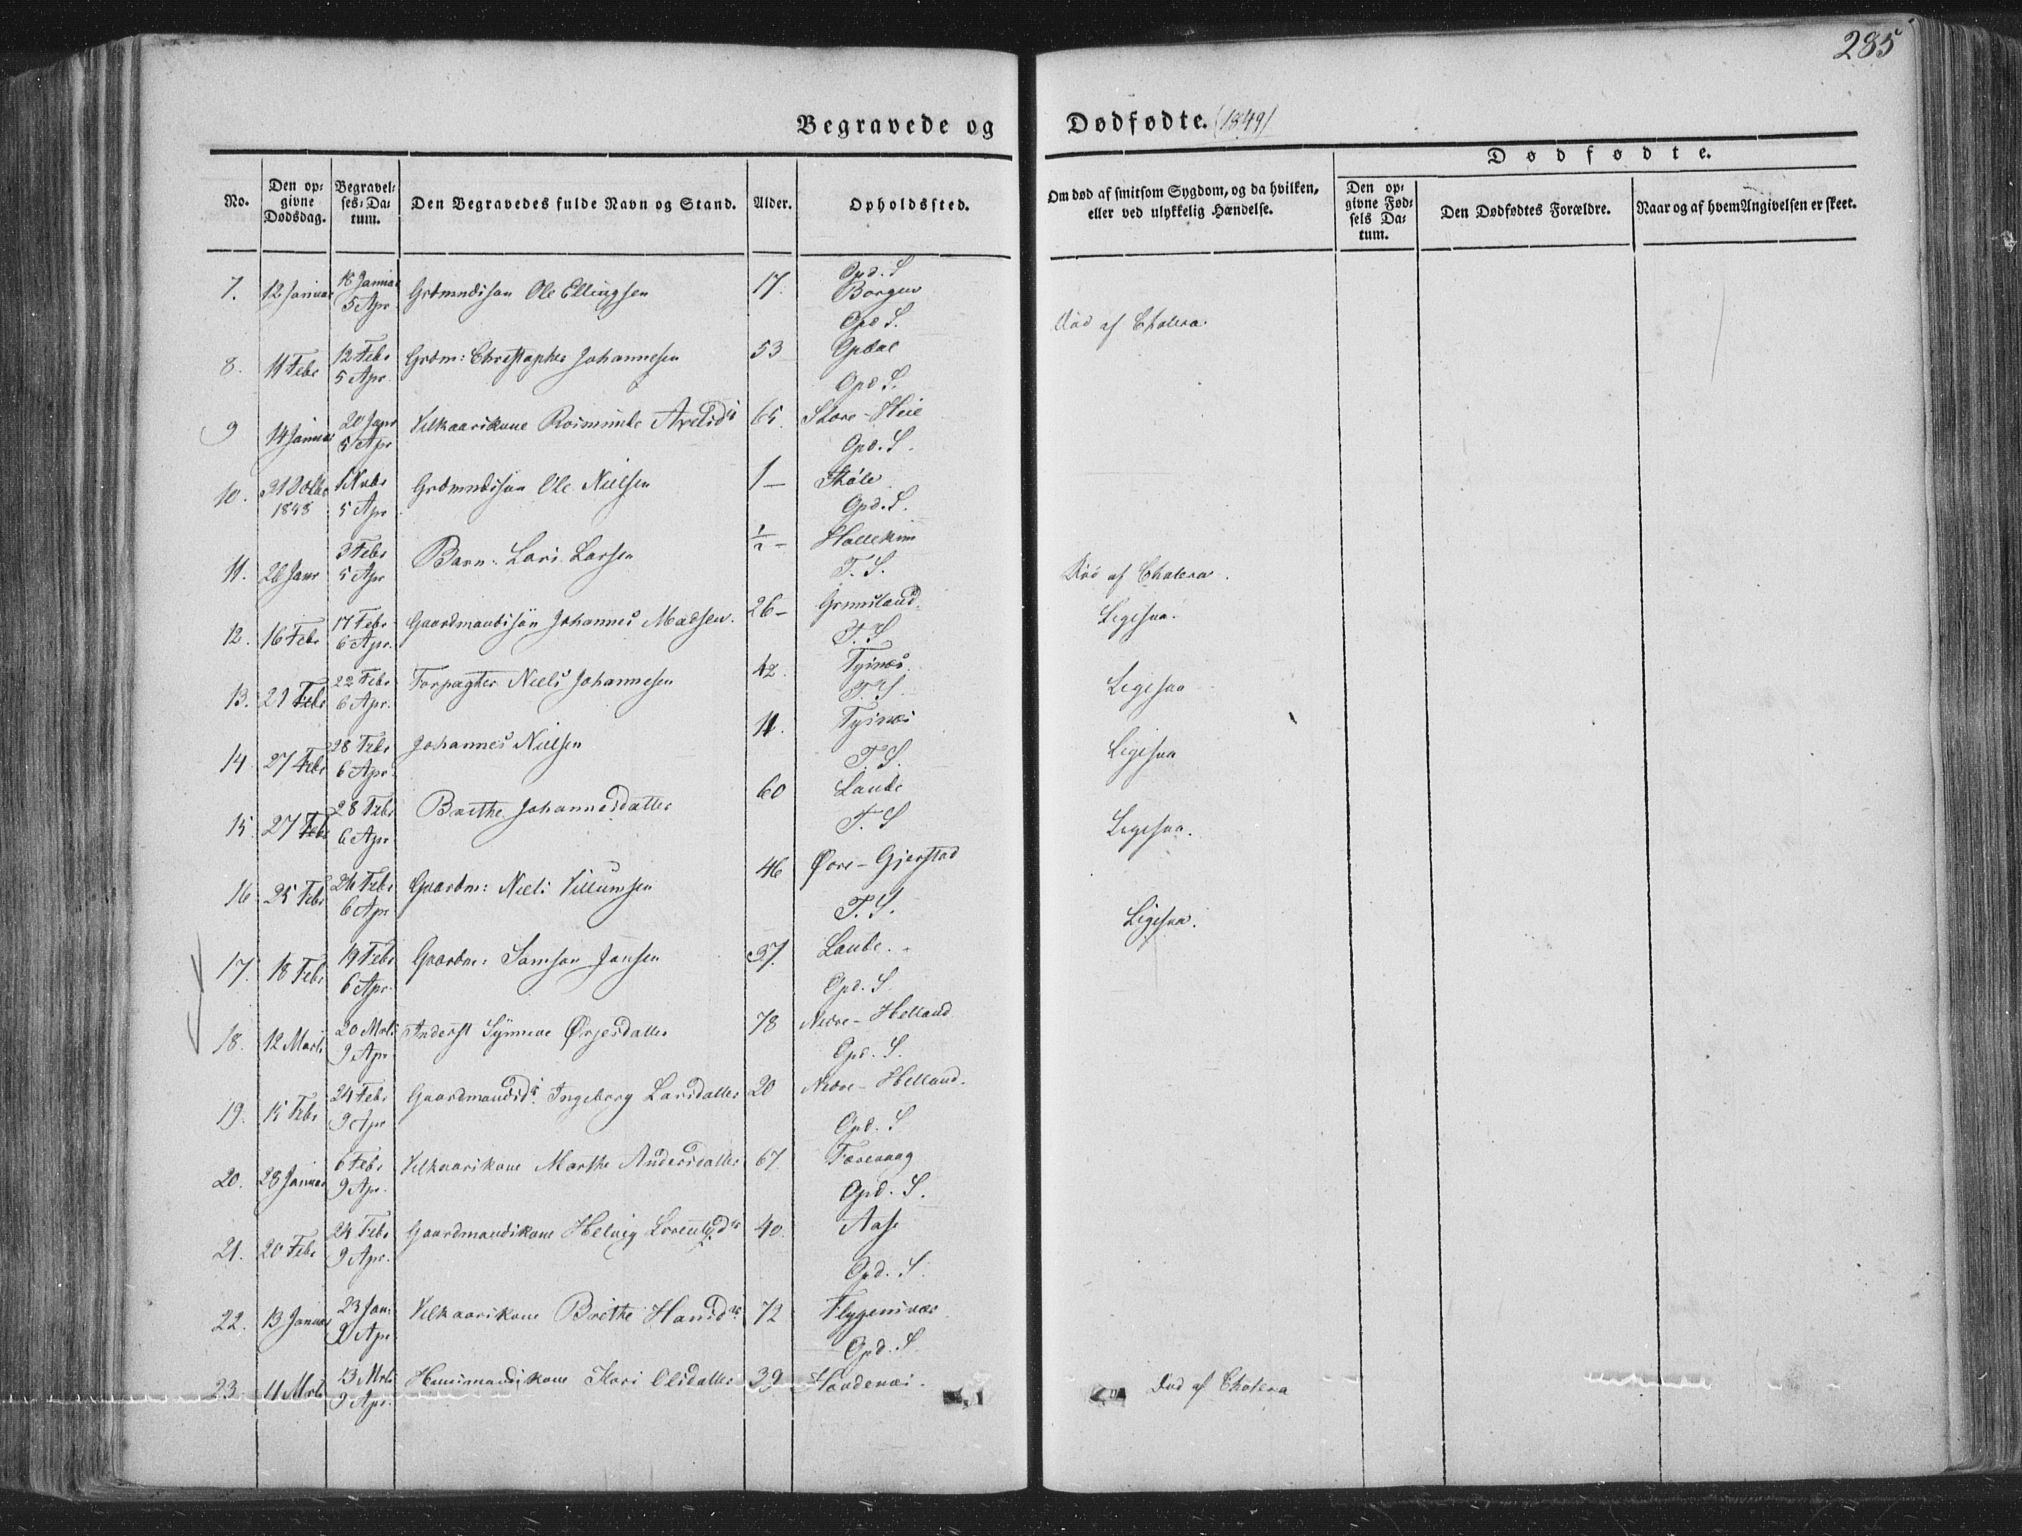 285
Begravede og Dødfødte. (1849)
No.
Den opgivne Dødsdag.
Begravelses-Datum.
Den Begravedes fulde Navn og Stand.
Alder.
Opholdssted.
Om død af smitsom Sygdom, og da hvilken, eller ved ulykkelig Hændelse.
Dødfødte.
Den opgivne Fødsels Datum.
Den Dødfødtes Forældre.
Naar og af hvem Angivelsen er skeet.
7. 12 Januar 18 Januar 5 Apr Grdmndssøn Ole Ellingsen 17. Opd. S Borgen
8. 11 Febr 12 Febr 5 Apr Grdm: Christopher Johannesen 53 Opd S. Opdal Død af Cholera.
9 14 Januar 20 Janr 5 Apr Vilkaarskone Axelsdr 65. Opd S. Store-Heie
10. 31 Octbr 1848 1 Nvbr 5 Apr Grdmndssøn Ole Nielsen 1 – Opd. S. Støle
11. 28 Janr 3 Febr 5 Apr Barn: Lars Larsen 1/2 – Opd. S. Hollekim
12. 16 Febr 17 Febr 6 Apr. Gaardmandssøn Johannes Madsen. 26 – T. S. Grimsland. Død af Cholera.
13. 21 Febr 22 Febr 6 Apr. Forpagter Niels Johannesen 42. T. S. Tysnæs. Ligesaa.
14 27 Febr 28 Febr 6 Apr. Johannes Nielsen 11. T. S. Tysnæs Ligesaa
15. 27 Febr 28 Febr 6 Apr. Brithe Johannesdatter 60 T. S. Lande Ligesaa
16. 25 Febr 26 Febr 6 Apr Gaardm: Niels Villumsen 46 T. S Øvre-Gjerstad Ligesaa.
17. 18 Febr 19 Febr 6 Apr. Gaardm: Samson Jansen 37. T. S. Lande. Ligesaa.
18. 12 Marts 20 Mrts 9 Apr Inderst Synneve Ørjesdatter 78 Opd. S. Nedre-Helland
19. 15 Febr 24 Febr 9 Apr Gaardmandsdr. Ingeborg Larsdatter 20 Opd. S. Nedre-Helland.
20. 28 Januar 6 Febr 9 Apr. Vilkaarskone Marthe Andersdatter 67. Opd. S Færevaag
21. 20 Febr 24 Febr 9 Apr. Gaardmandskone Helvig 40. Opd. S. Aase
22. 13 Januar 23 Jan: 9 Apr Vilkaarskone Brithe Hansdr 72 Opd. S. Flygensvær
23. 11 Mrts 13 Mrts 9 Apr. Huusmandskone Kari Olsdatter 39 Opd. S Hovdenæs Død af Cholera